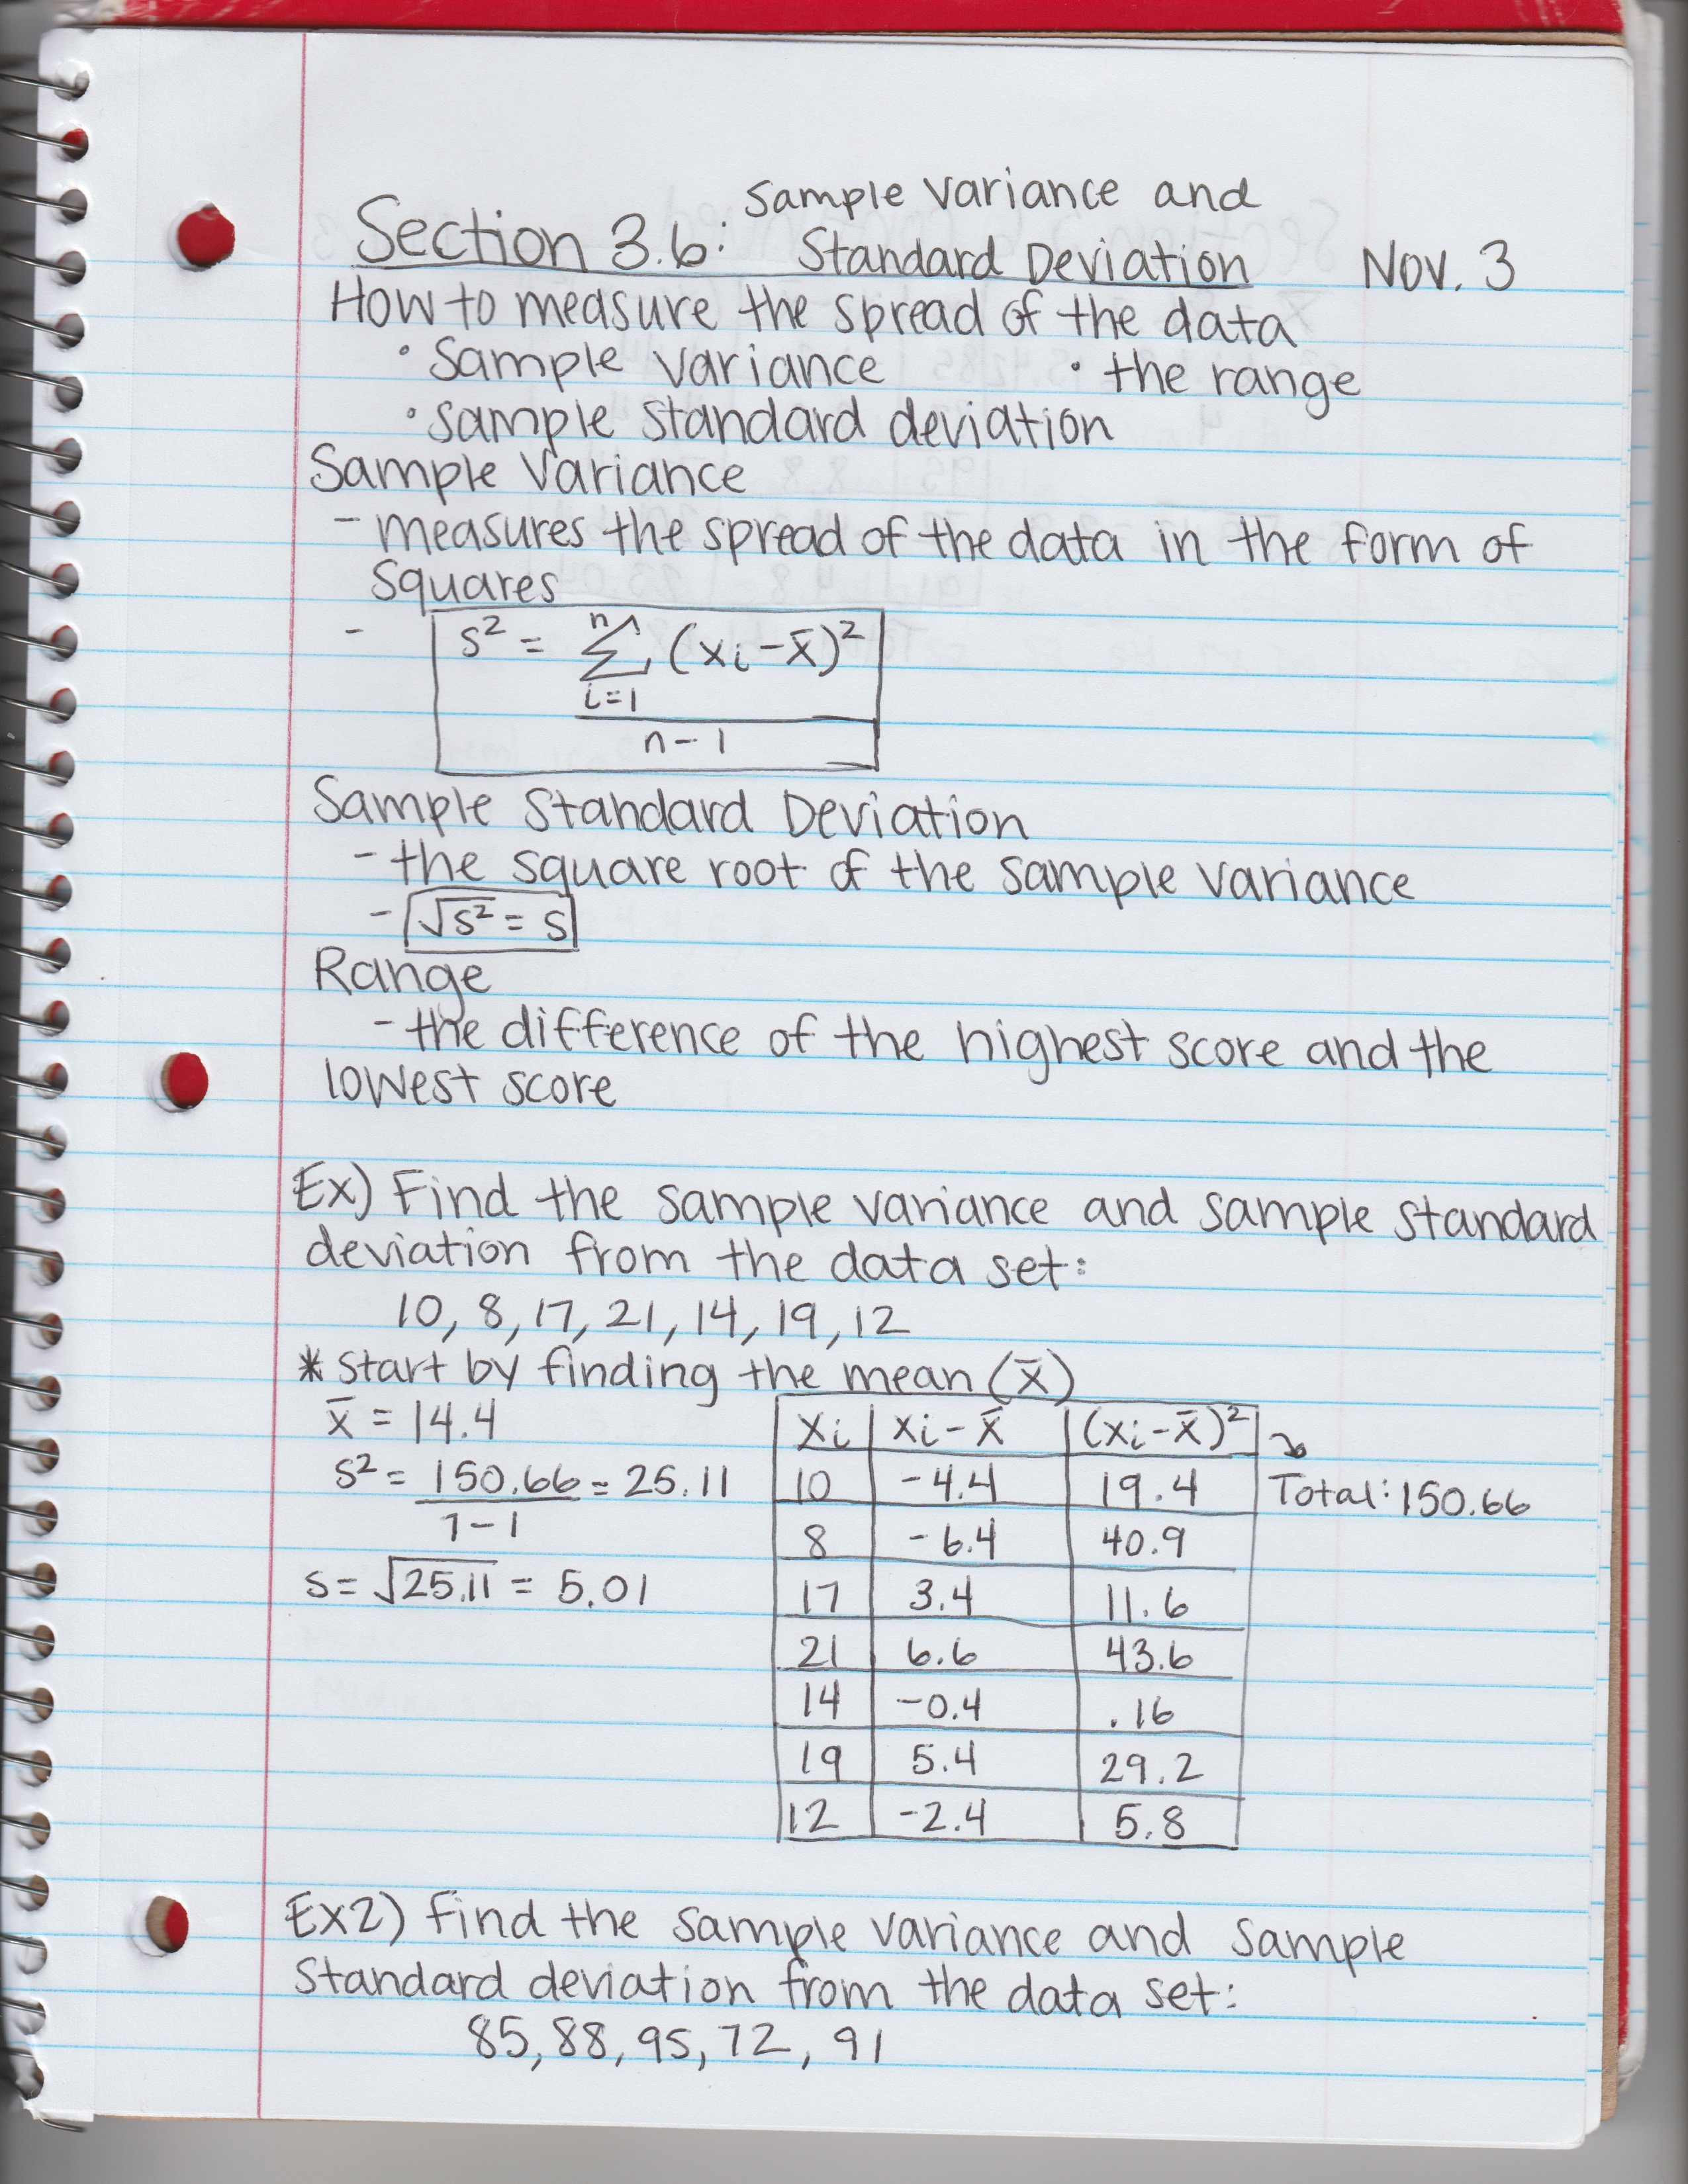 Sample Variance and
Section 3.6: Standard Deviation Nov. 3
How to measure the spread of the data
• Sample Variance • the range
• sample standard deviation
Sample Variance
- measures the spread of the data in the form of
squares
- s² = n Σ i=1 (xi - x̄)²
n - 1
Sample Standard Deviation
- the square root of the sample variance
- √s² = s
Range
- the difference of the highest score and the
lowest score
Ex) Find the sample variance and sample standard
deviation from the data set:
10, 8, 17, 21, 14, 19, 12
* Start by finding the mean (x̄)
x̄ = 14.4
s² = 150.66 = 25.11
7 - 1
s = √25.11 = 5.01
xi xi - x̄ (xi - x̄)²
10 -4.4 19.4 Total: 150.66
8 -6.4 40.9
17 3.4 11.6
21 6.6 43.6
14 -0.4 .16
19 5.4 29.2
12 -2.4 5.8
Ex2) Find the sample variance and sample
standard deviation from the data set:
85, 88, 95, 72, 91